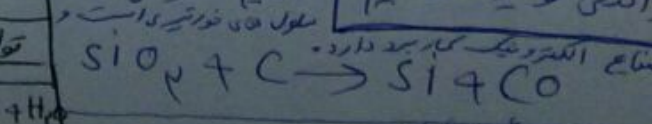 سلول های خورشیدی است و
صنایع الکترونیک کاربرد دارد.
SiO۲ + C → Si + CO